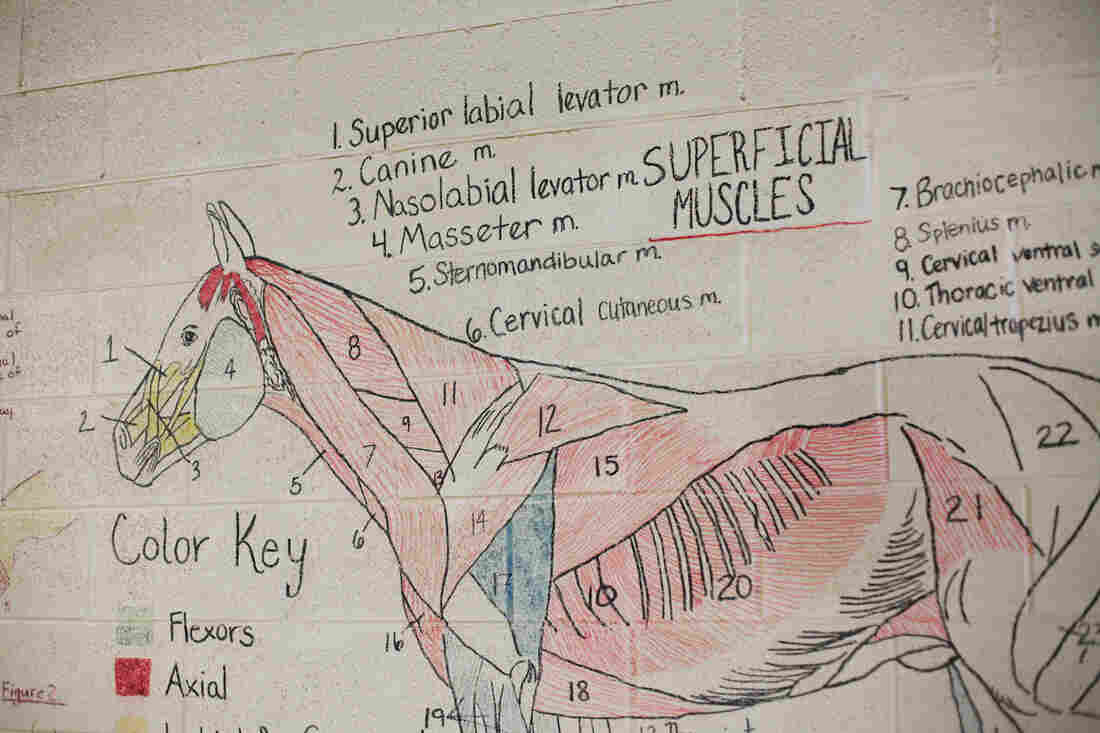 1. Superior labial levator m.
2. Canine m.
3. Nasolabial levator m.
4. Masseter m.
5. Sternomandibular m.
6. Cervical Cutaneous m.
SUPERFICIAL
MUSCLES
7. Brachiocephalic m
8. Splenius m.
9. Cervical ventral
10. Thoracic ventral
11. Cervical trapezius m
of
of
1
2
3
4
5
6
7
8
9
11
12
13
14
15
16
17
18
19
20
21
22
Color Key
Flexors
Axial
Figure 2